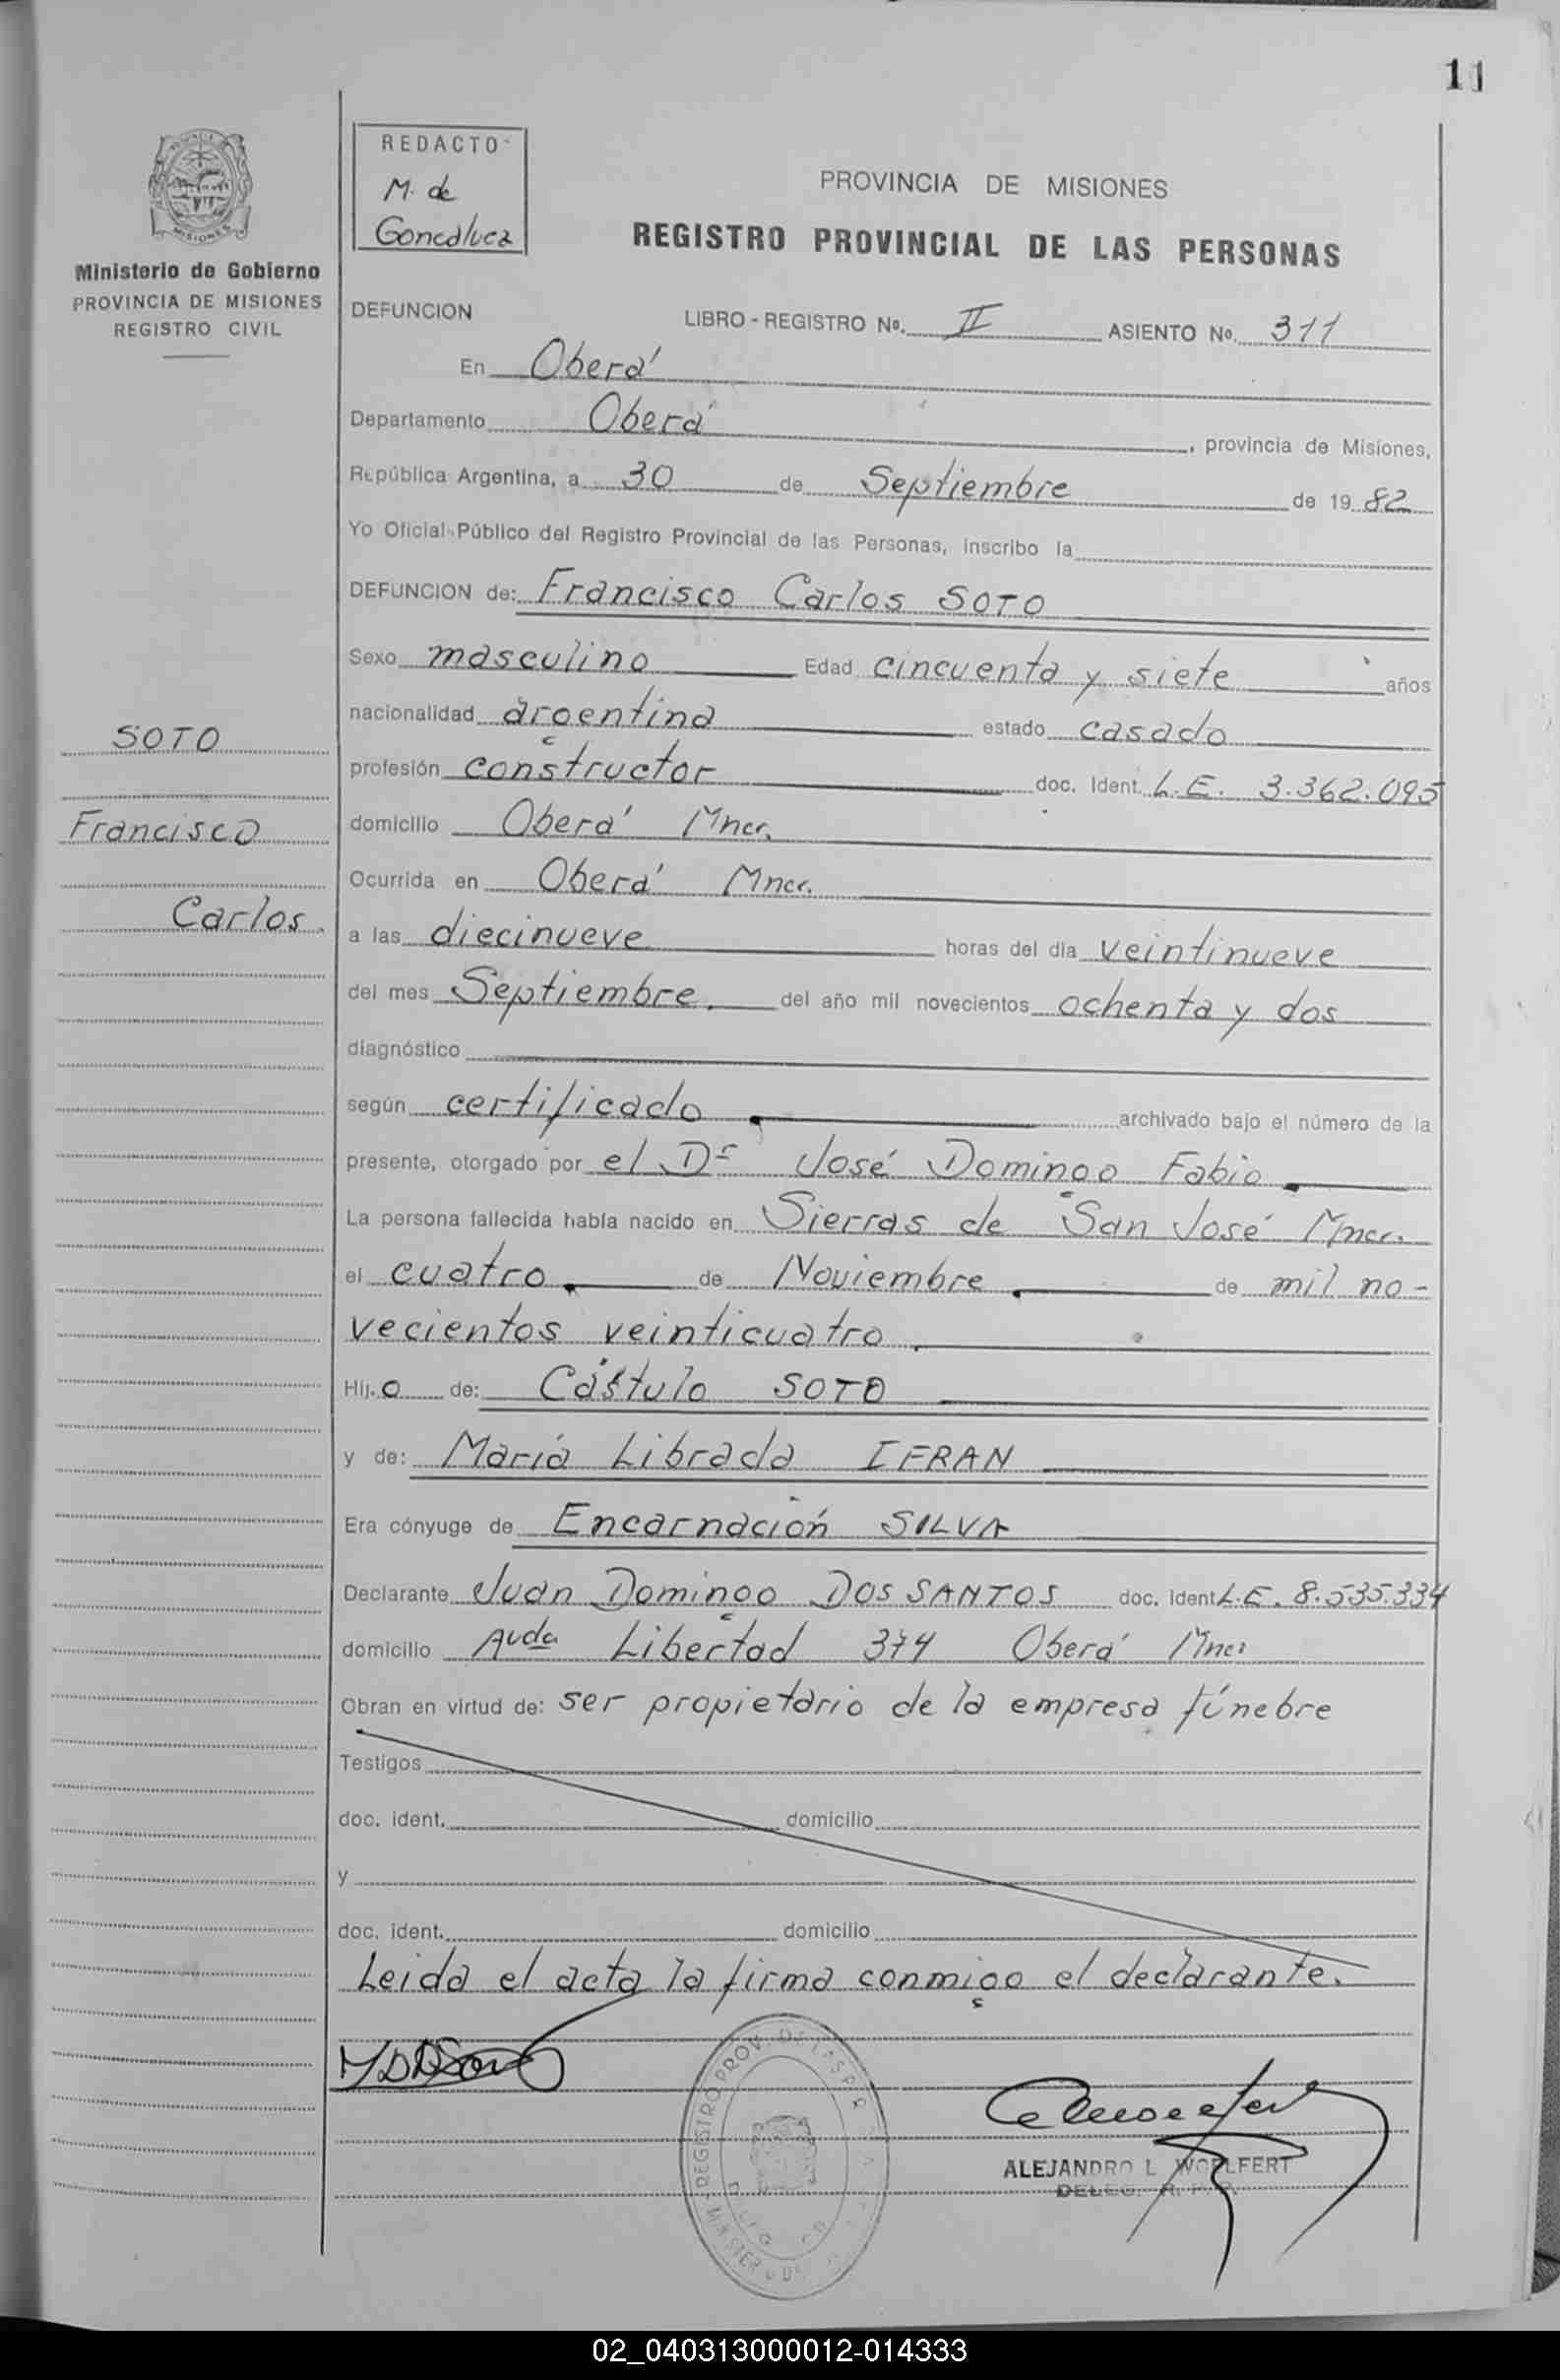 11
REDACTO
M. de
Goncalvez
Ministerio de Gobierno
PROVINCIA DE MISIONES
REGISTRO CIVIL
PROVINCIA DE MISIONES
REGISTRO PROVINCIAL DE LAS PERSONAS
DEFUNCION LIBRO - REGISTRO Nº. II ASIENTO Nº. 311
En Oberá
Departamento Oberá, provincia de Misiones,
República Argentina, a 30 de Septiembre de 1982
Yo Oficial Público del Registro Provincial de las Personas, inscribo la
DEFUNCION de: Francisco Carlos SOTO
Sexo masculino Edad cincuenta y siete años
nacionalidad argentina estado casado
profesión constructor doc. Ident. L.E. 3.362.095
domicilio Oberá Mnes.
Ocurrida en Oberá Mnes.
a las diecinueve horas del día veintinueve
del mes Septiembre. del año mil novecientos ochenta y dos
diagnóstico
según certificado archivado bajo el número de la
presente, otorgado por el Dr José Domingo Fabio
La persona fallecida había nacido en Sierras de San José Mnes.
el cuatro de Noviembre de mil no-
vecientos veinticuatro
Hijo de: Cástulo SOTO
y de: María Librada IFRAN
Era cónyuge de Encarnación SILVA
Declarante Juan Domingo DOS SANTOS doc. Ident L.E. 8.535.334
domicilio Avda Libertad 374 Oberá Mnes
Obran en virtud de: ser propietario de la empresa fúnebre
Testigos
doc. ident. domicilio
y
doc. ident. domicilio
Leida el acta la firma conmigo el declarante.
SOTO
Francisco
Carlos.
ALEJANDRO L. WOELFERT
DELEG. R. P. P.
02_040313000012-014333